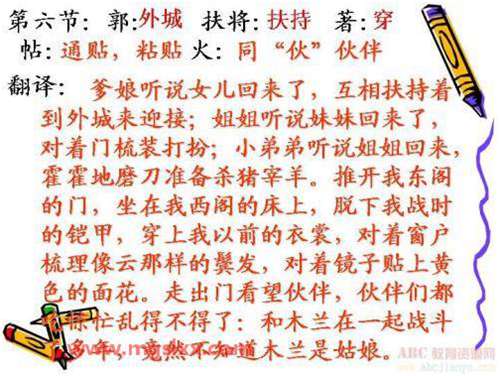 第六节：郭：外城 扶将：扶持 著：穿
帖：通贴，粘贴 火：同“伙”伙伴
翻译：爹娘听说女儿回来了，互相扶持着
到外城来迎接；姐姐听说妹妹回来了，
对着门梳装打扮；小弟弟听说姐姐回来，
霍霍地磨刀准备杀猪宰羊。推开我东阁
的门，坐在我西阁的床上，脱下我战时
的铠甲，穿上我以前的衣裳，对着窗户
梳理像云那样的鬓发，对着镜子贴上黄
色的面花。走出门看望伙伴，伙伴们都
惊忙乱得不得了：和木兰在一起战斗
多年，竟然不知道木兰是姑娘。
ABC 教育资源网